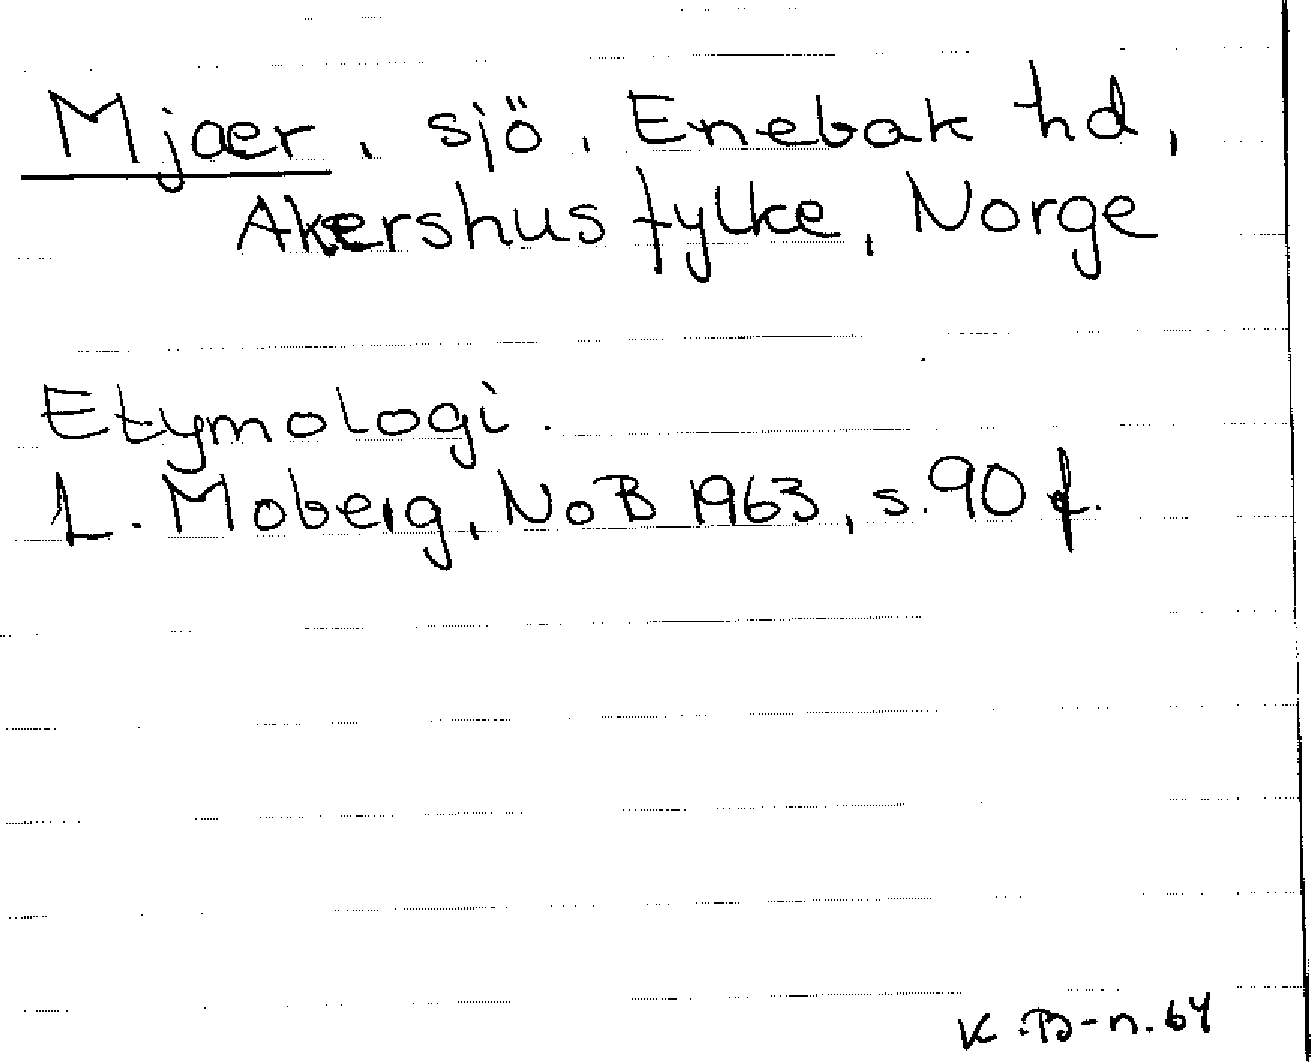 Mjaer, sjö, Enebak hd,
Akershus fylke, Norge
Etymologi.
L. Moberg, NoB 1963, s. 90 f.
K. B-n. 64